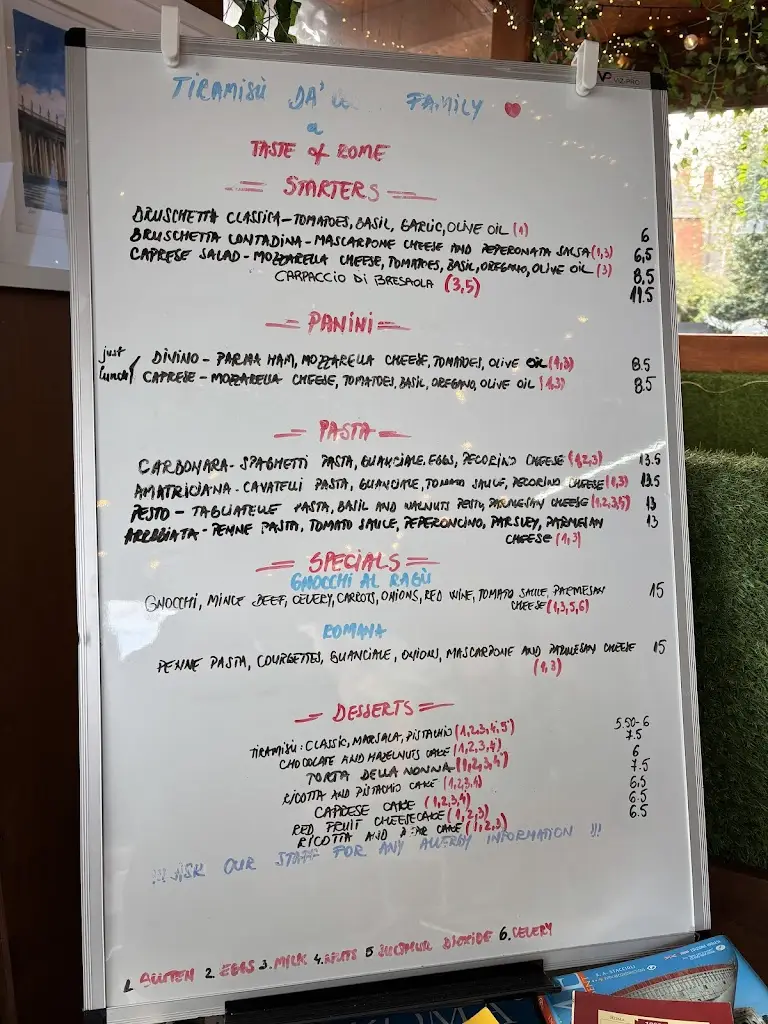 VIZ-PRO
TIRAMISÙ DA' FAMILY
a
TASTE of ROME
STARTERS
BRUSCHETTA CLASSICA - TOMATOES, BASIL, GARLIC, OLIVE OIL (1) 6
BRUSCHETTA CONTADINA - MASCARPONE CHEESE AND PEPERONATA SALSA (1,3) 6,5
CAPRESE SALAD - MOZZARELLA CHEESE, TOMATOES, BASIL, OREGANO, OLIVE OIL (3) 8,5
CARPACCIO DI BRESAOLA (3,5) 11.5
PANINI
just lunch!
DIVINO - PARMA HAM, MOZZARELLA CHEESE, TOMATOES, OLIVE OIL (1,3) 8.5
CAPRESE - MOZZARELLA CHEESE, TOMATOES, BASIL, OREGANO, OLIVE OIL (1,3) 8.5
PASTA
CARBONARA - SPAGHETTI PASTA, GUANCIALE, EGGS, PECORINO CHEESE (1,2,3) 13.5
AMATRICIANA - CAVATELLI PASTA, GUANCIALE, TOMATO SAUCE, PECORINO CHEESE (1,3) 13.5
PESTO - TAGLIATELLE PASTA, BASIL AND WALNUTS PESTO, PARMESAN CHEESE (1,2,3,5) 13
ARRABIATA - PENNE PASTA, TOMATO SAUCE, PEPERONCINO, PARSLEY, PARMESAN 13
CHEESE (1,3)
SPECIALS
GNOCCHI AL RAGÙ
GNOCCHI, MINCE BEEF, CELERY, CARROTS, ONIONS, RED WINE, TOMATO SAUCE, PARMESAN 15
CHEESE (1,3,5,6)
ROMANA
PENNE PASTA, COURGETTES, GUANCIALE, ONIONS, MASCARPONE AND PARMESAN CHEESE 15
(1,3)
DESSERTS
TIRAMISÙ: CLASSIC, MARSALA, PISTACHIO (1,2,3,4,5) 5.50-6
CHOCOLATE AND HAZELNUTS CAKE (1,2,3,4) 7.5
TORTA DELLA NONNA (1,2,3,4) 6
RICOTTA AND PISTACHIO CAKE (1,2,3,4) 7.5
CAPRESE CAKE (1,2,3,4) 6,5
RED FRUIT CHEESECAKE (1,2,3) 6.5
RICOTTA AND PEAR CAKE (1,2,3) 6.5
!!! ASK OUR STAFF FOR ANY ALLERGY INFORMATION !!!
1. GLUTEN 2. EGGS 3. MILK 4. NUTS 5 SULPHUR DIOXIDE 6. CELERY